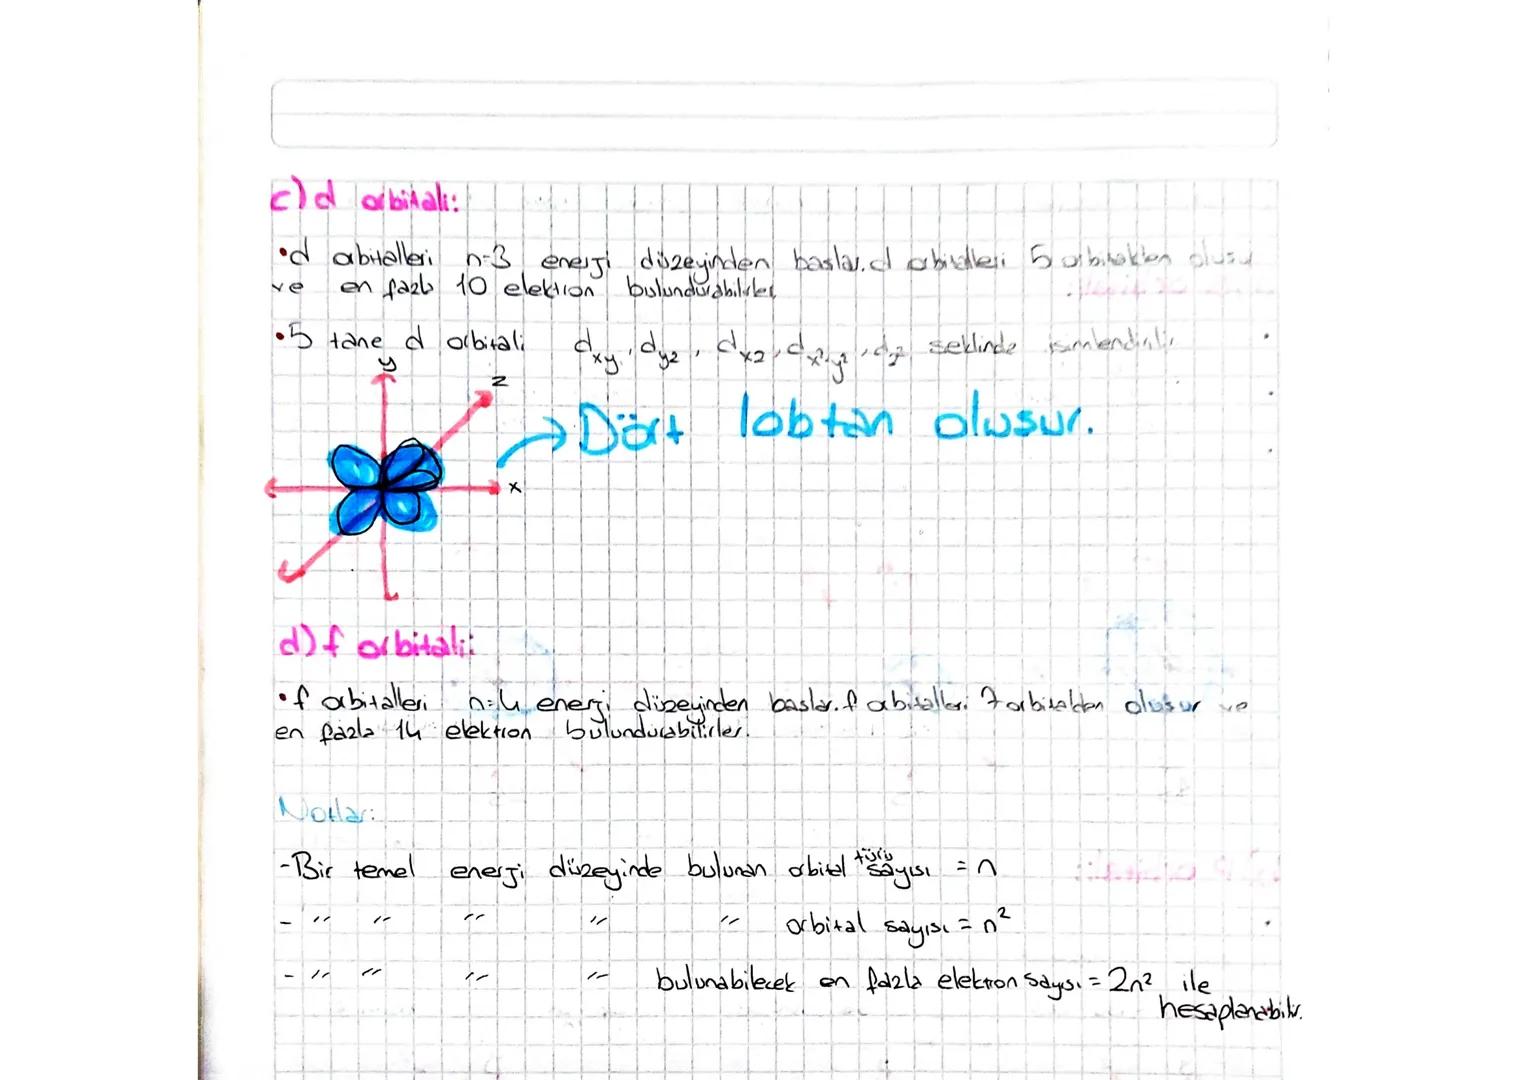 c) d orbitali:
•d orbitalleri n=3 enerji düzeyinden başlar. d orbitalleri 5 orbitalden oluşur
ve en fazla 10 elektron bulundurabilirler.
•5 tane d orbitali dxy, dyz, dxz, dx²-y², dz² seklinde isimlendirilir.
y
z
→ Dört lobtan olusur.
x
d) f orbitali:
•f orbitalleri n=4 enerji düzeyinden baslar. f orbitalleri 7 orbitalden olusur ve
en fazla 14 elektron bulundurabilirler.
Notlar:
-Bir temel enerji düzeyinde bulunan orbital türü sayısı = n
- " " " " " orbital sayısı = n²
- " " " " bulunabilecek en fazla elektron sayısı = 2n² ile
hesaplanabilir.